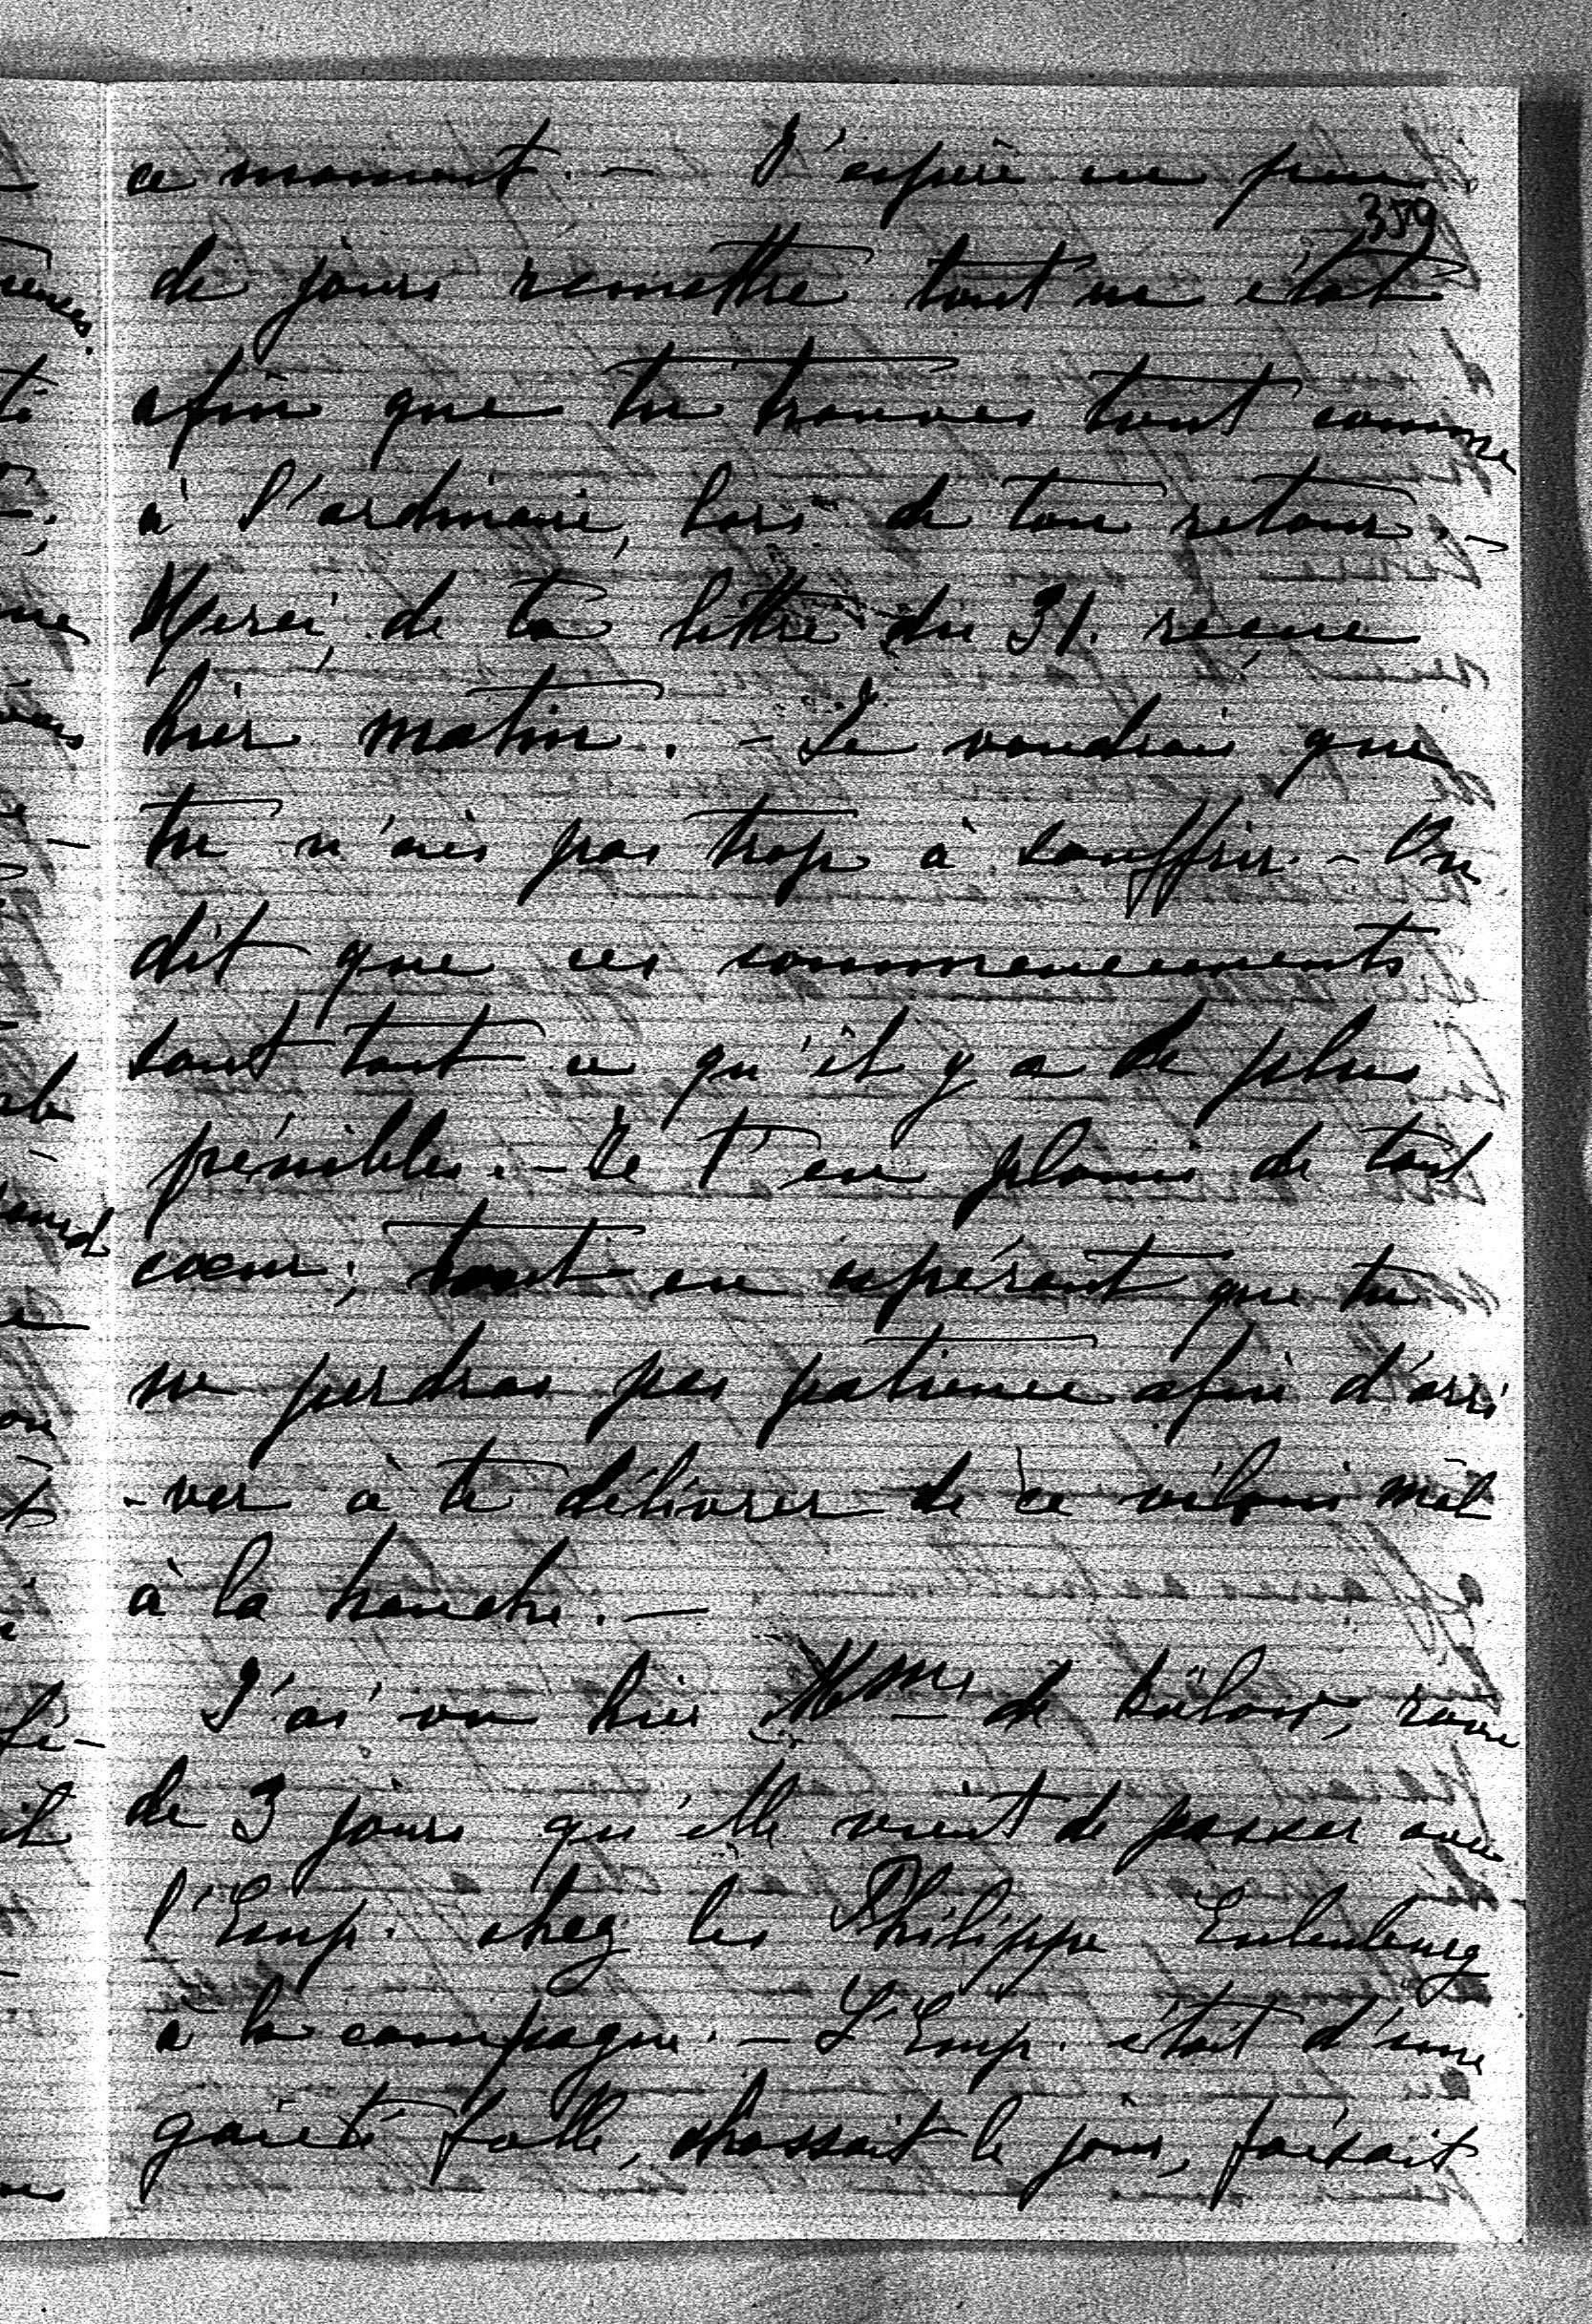 ce moment. – J'espère en peu
359
de jours remettre tout en état
afin que tu trouves tout comme
à l'ordinaire, lors de ton retour. –
Merci, de ta lettre du 31. reçue
hier matin. – Je voudrais que
tu n'aies pas trop à souffrir. – On
dit que ces commencements
sont tout ce qu'il y a de plus
pénibles. – Je t'en plains de tout
cœur; tout en espérant que tu
ne perdras pas patience afin d'arri
-ver à te délivrer de ce vilain mal
à la hanche. –
J'ai vu hier Mme de Bülow, ravie
de 3 jours qu'elle vient de passer avec
l'Emp. chez les Philippe Eulenbourg
à la campagne. – L'Emp. était d'une
gaieté folle, chassait le jour, faisait